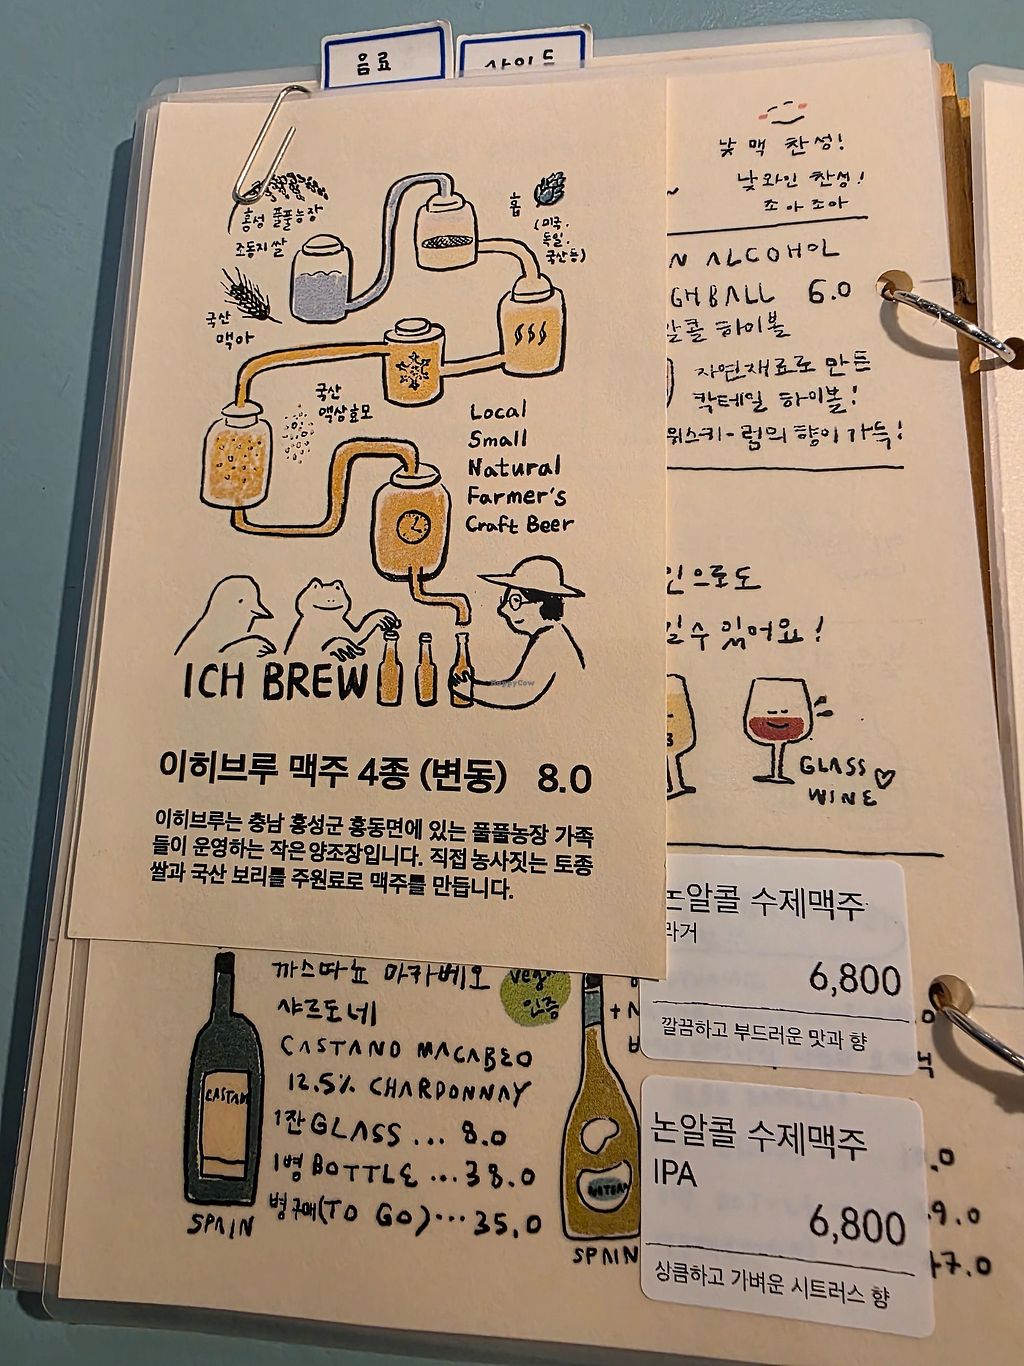 음료
사이드
홍성 풀풀농장
조동지쌀
홉
(미국,
독일,
국산등)
국산
맥아
국산
액상효모
Local
Small
Natural
Farmer's
Craft Beer
ICH BREW
HappyCow
이히브루 맥주 4종 (변동) 8.0
이히브루는 충남 홍성군 홍동면에 있는 풀풀농장 가족
들이 운영하는 작은 양조장입니다. 직접 농사짓는 토종
쌀과 국산 보리를 주원료로 맥주를 만듭니다.
낮맥 찬성!
낮와인 찬성!
조아조아
N ALCOHOL
GHBALL 6.0
알콜 하이볼
자연재료로 만든
칵테일 하이볼!
위스키-럼의 향이 가득!
인으로도
길 수 있어요!
GLASS
WINE
까스따뇨 마카베오
샤르도네
CASTANO MACABEO
12.5% CHARDONNAY
1잔 GLASS ... 8.0
1병 BOTTLE ... 38.0
병구매(TO GO) ... 35.0
CASTAN
SPAIN
인증
SPAIN
논알콜 수제맥주
라거
6,800
깔끔하고 부드러운 맛과 향
논알콜 수제맥주
IPA
6,800
상큼하고 가벼운 시트러스 향
.0
9.0
47.0